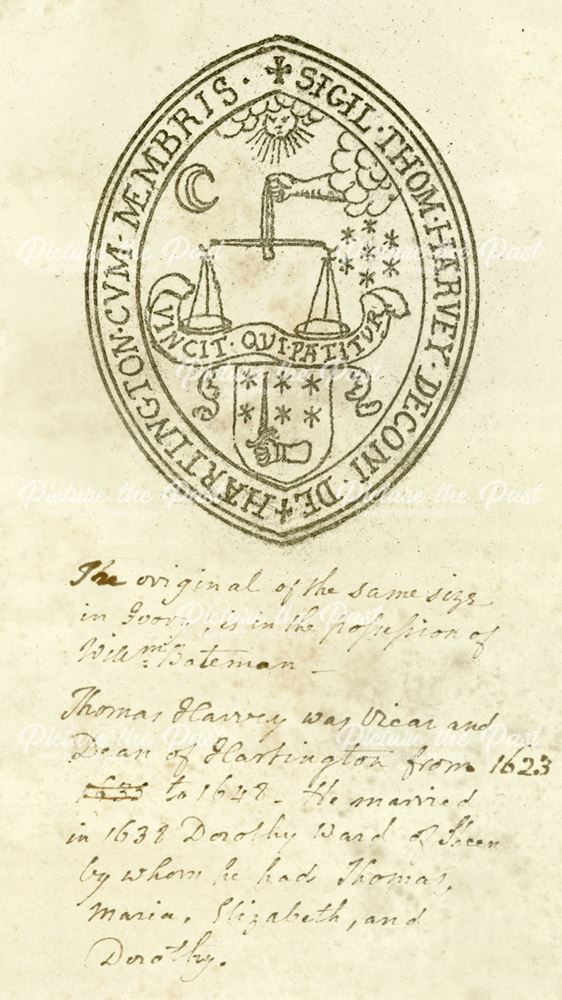 ✠ SIGIL · THOM · HARVEY · DECONI DE + HARTINGTON · CVM · MEMBRIS ·
VINCIT · QVI PATITVR
The original of the same size
in Ivory, is in the possession of
Willm. Bateman —
Thomas Harvey was Vicar and
Dean of Hartington from 1623
1635 to 1648 – He married
in 1638 Dorothy Ward of Sheen
by whom he had Thomas,
Maria, Elizabeth, and
Dorothy.
Picture the Past